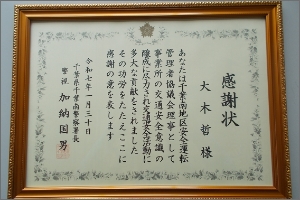 感謝状
大木哲様
あなたは千葉南地区安全運転
管理者協議会理事として
事業所の交通安全意識の
醸成に尽力され交通安全活動に
多大な貢献をされました
その功労をたたえここに
感謝の意を表します
令和七年一月三十日
千葉県千葉南警察署長
警視 加納国男